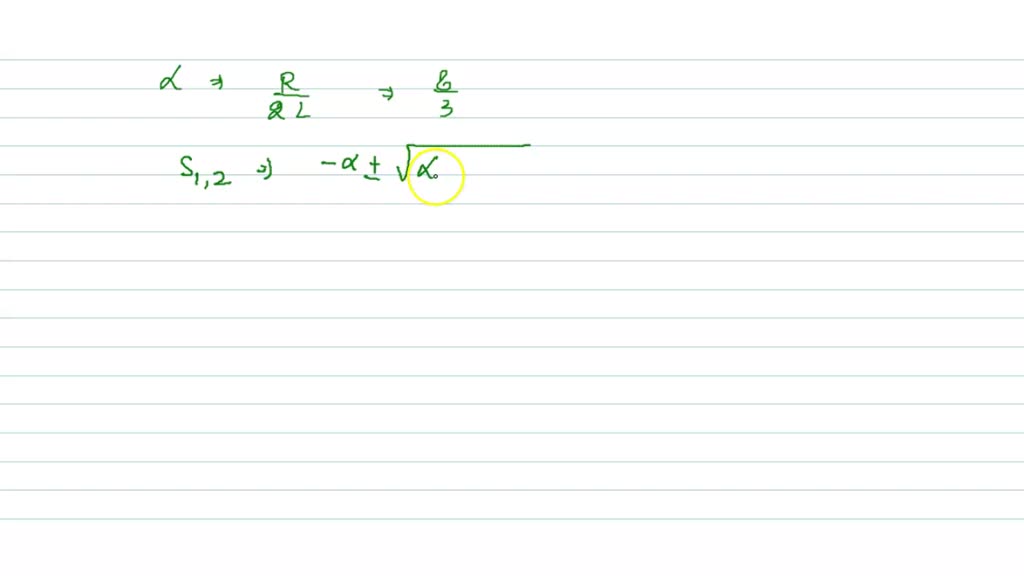 α ⇒ R/2L ⇒ 8/3
S1,2 ⇒ -α ± √α